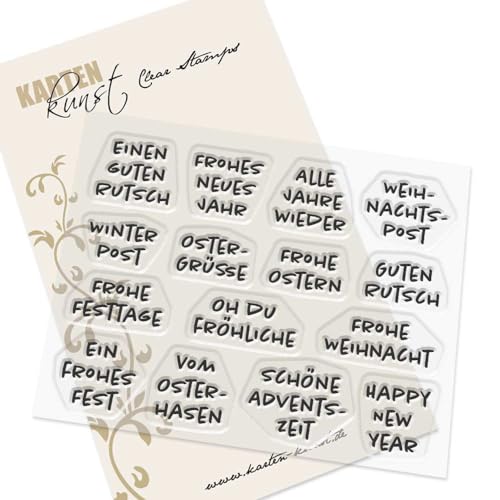 KARTEN
Kunst
Clear Stamps
EINEN
GUTEN
RUTSCH
FROHES
NEUES
JAHR
ALLE
JAHRE
WIEDER
WEIH-
NACHTS-
POST
WINTER
POST
OSTER-
GRÜSSE
FROHE
OSTERN
GUTEN
RUTSCH
FROHE
FESTTAGE
OH DU
FRÖHLICHE
FROHE
WEIHNACHT
EIN
FROHES
FEST
VOM
OSTER-
HASEN
SCHÖNE
ADVENTS-
ZEIT
HAPPY
NEW
YEAR
www.karten-kunst.de